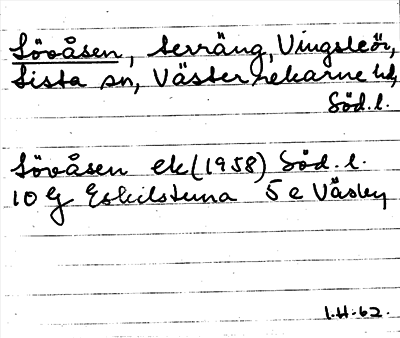 Lövåsen, terräng, Vingsleör,
Lista sn, Västerrekarne hd,
Söd.l.
Lövåsen ek (1958) Söd.l.
10 G Eskilstuna 5 e Väsby
I.H.-62.